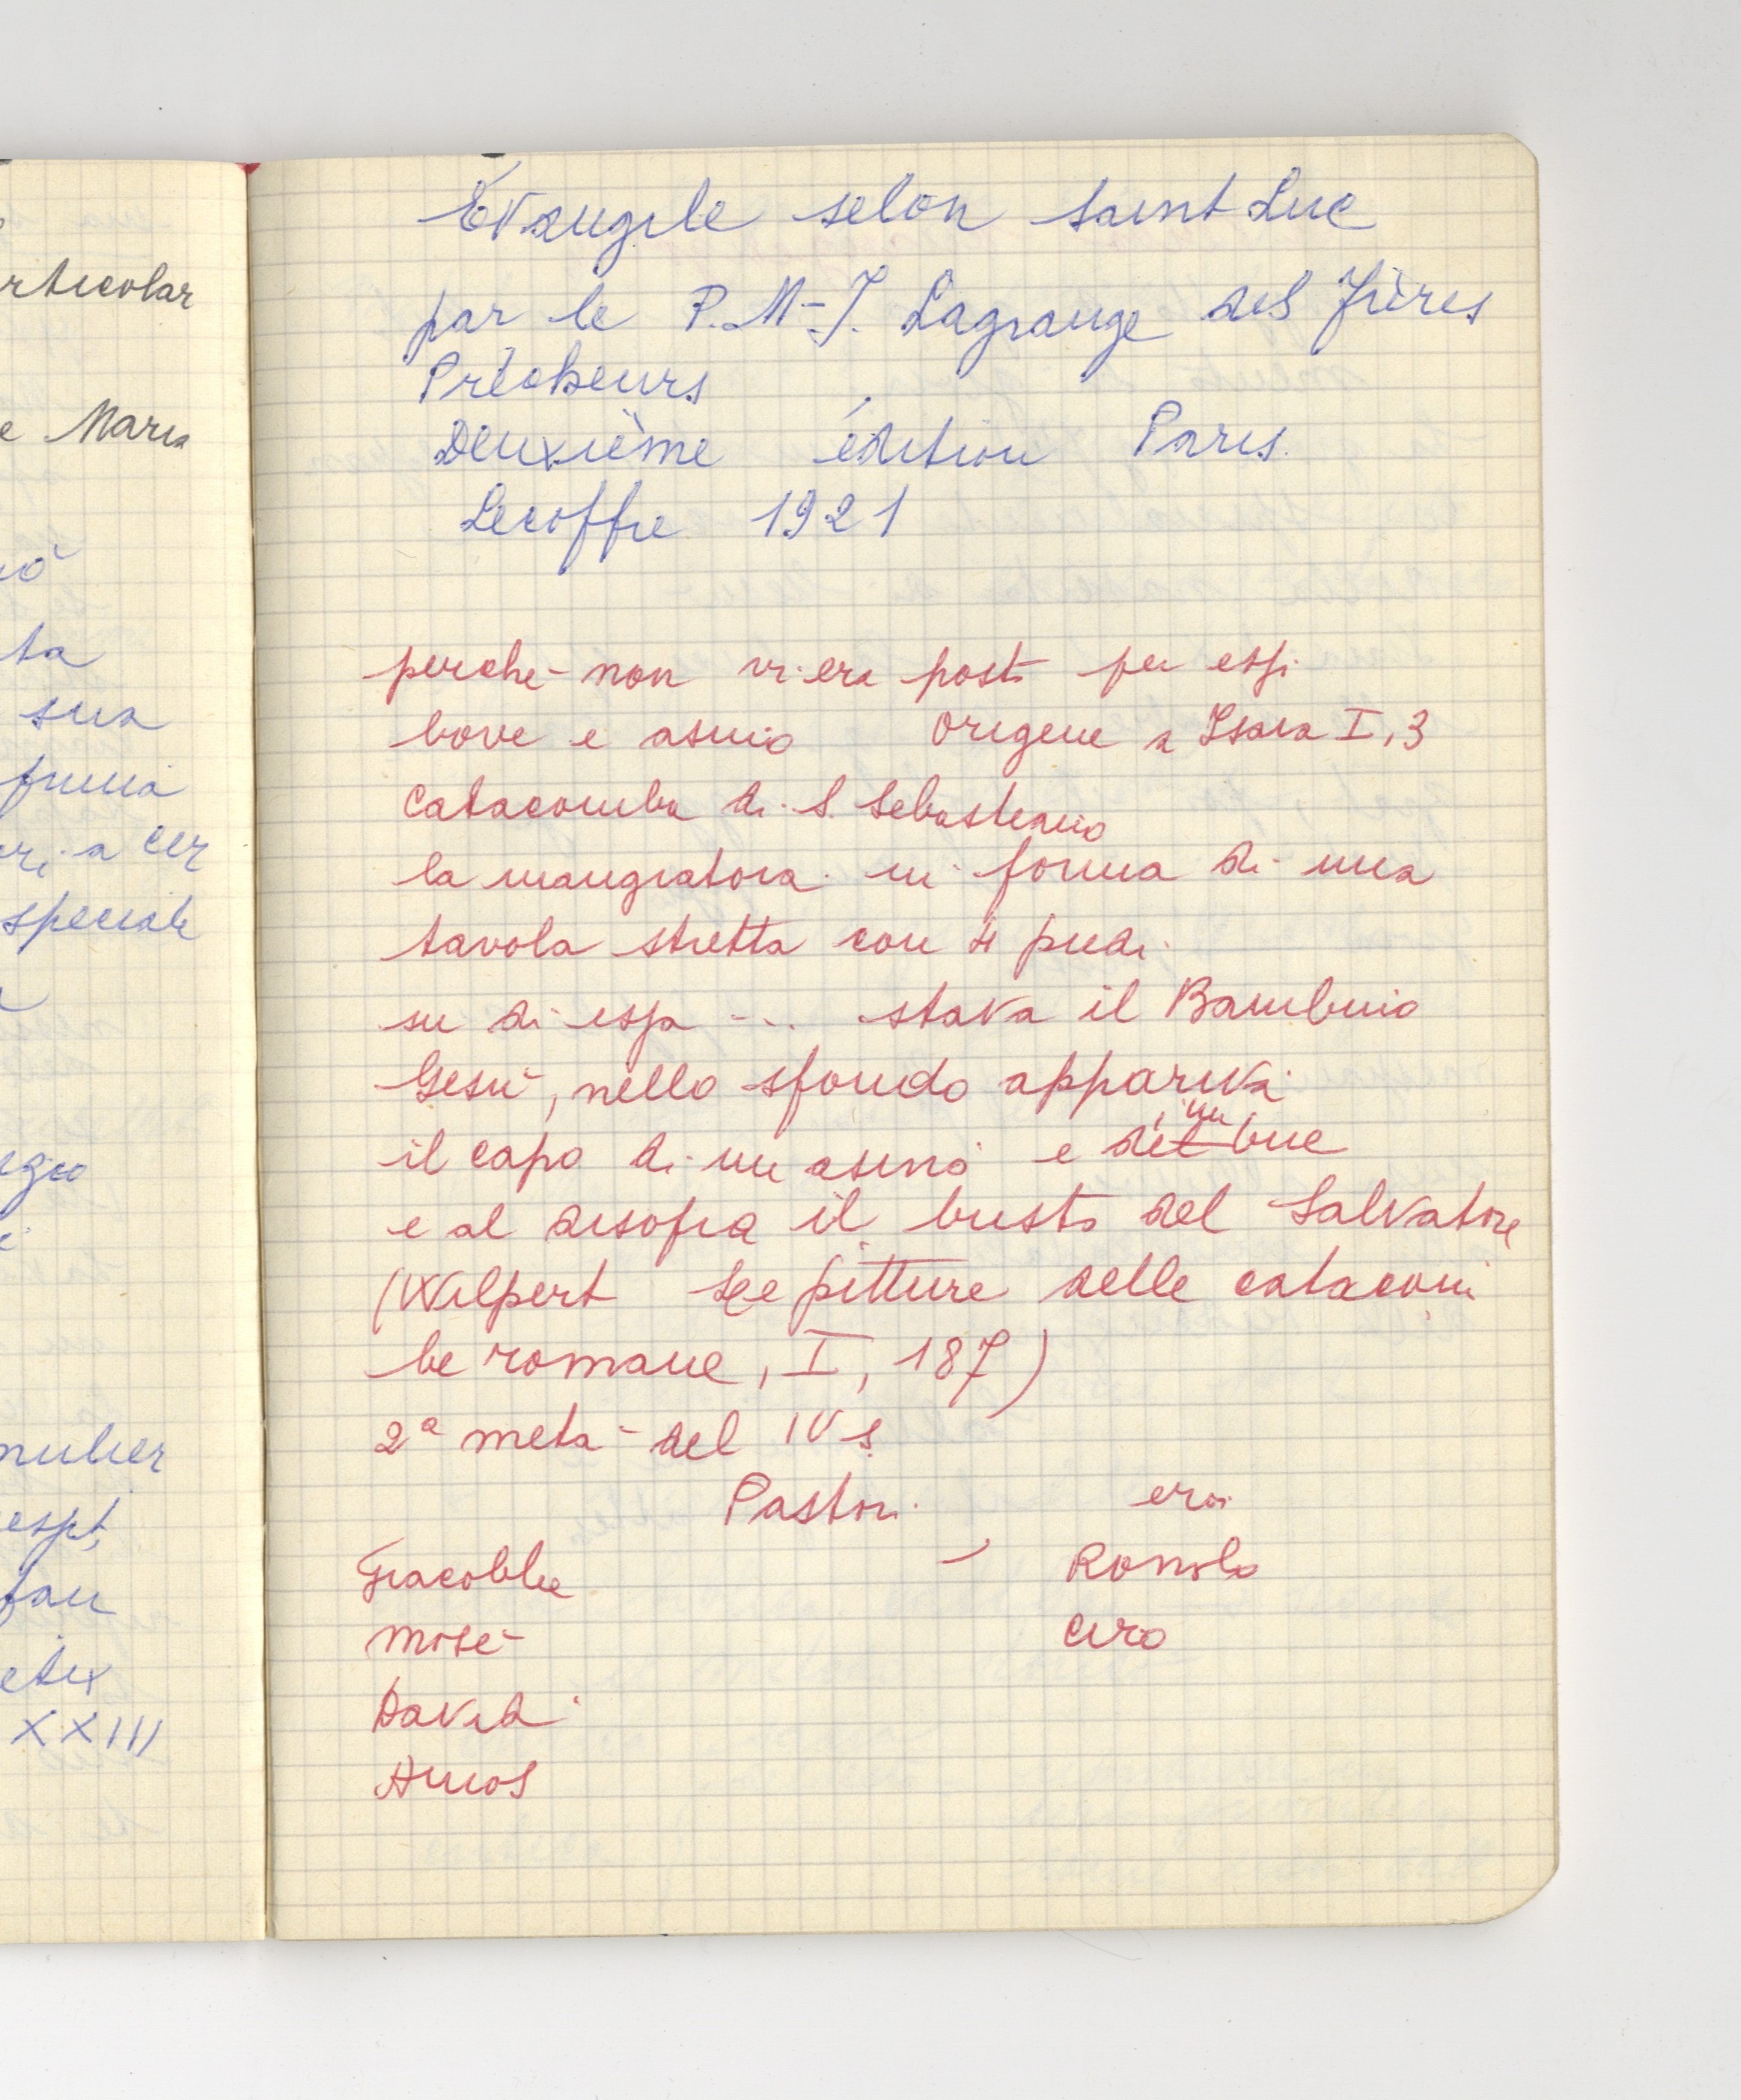 rticolar
e Maria
iò
ta
sua
speciale
mulier
XXIII
Évangile selon saint Luc
par le P. M-J. Lagrange des Frères
Prêcheurs
Deuxième édition Paris.
Lecoffre 1921
perchè non vi era posto per essi
bove e asino Origene a Isaia I, 3
Catacomba di S. Sebastiano
la mangiatoia in forma di una
tavola stretta con 4 piedi
su di essa ... stava il Bambino
Gesù, nello sfondo appariva
il capo di un asino e di un bue
e al disopra il busto del Salvatore
(Wilpert Le pitture delle catacom
be romane, I, 187)
2ª metà del IV s.
Pastori eroi
Giacobbe Romolo
Mosè Ciro
David
Amos